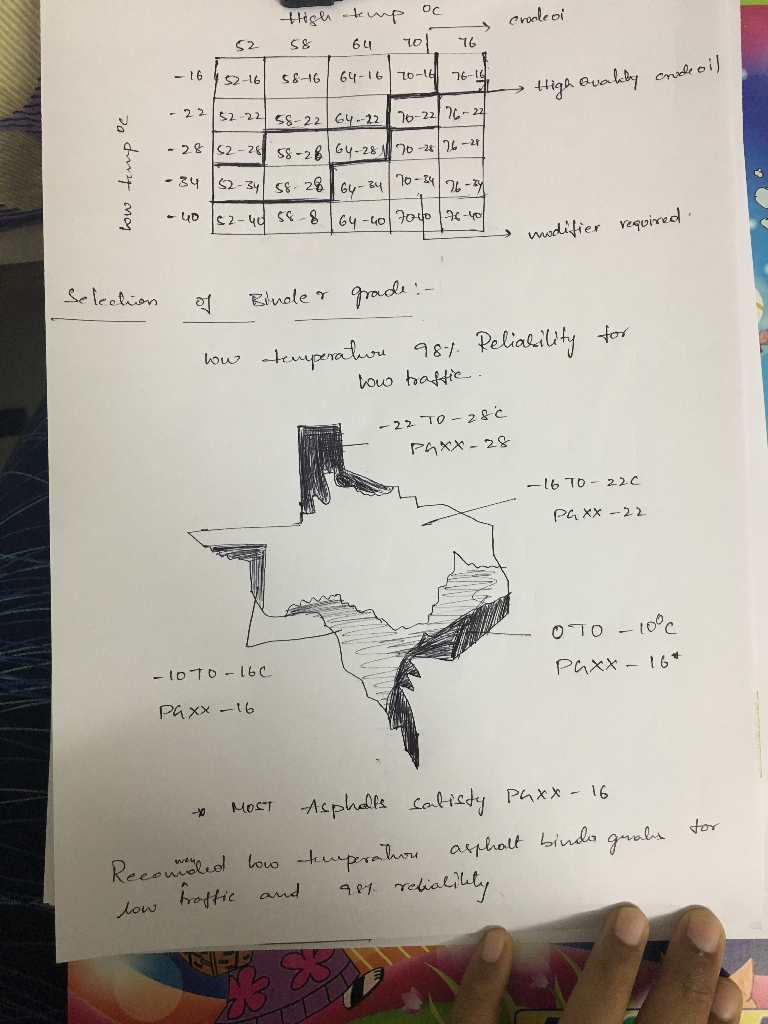 High temp °C
crude oi
52 58 64 70 76
-16 52-16 58-16 64-16 70-16 76-16
High Quality crude oil
-22 52-22 58-22 64-22 70-22 76-22
-28 52-28 58-28 64-28 70-28 76-28
-34 52-34 58-28 64-34 70-34 76-34
-40 52-40 58-8 64-40 7040 76-40
low temp °C
modifier required.
Selection of Binder grade:-
low temperature 98% Reliability for
low traffic.
-22 TO -28°C
PGXX-28
-16 TO -22C
PGXX-22
0 TO -10°C
PGXX-16*
-10 TO -16C
PGXX-16
* MOST Asphalts satisfy PGXX-16
low temperature asphalt binder grades for
low traffic and 98% reliability